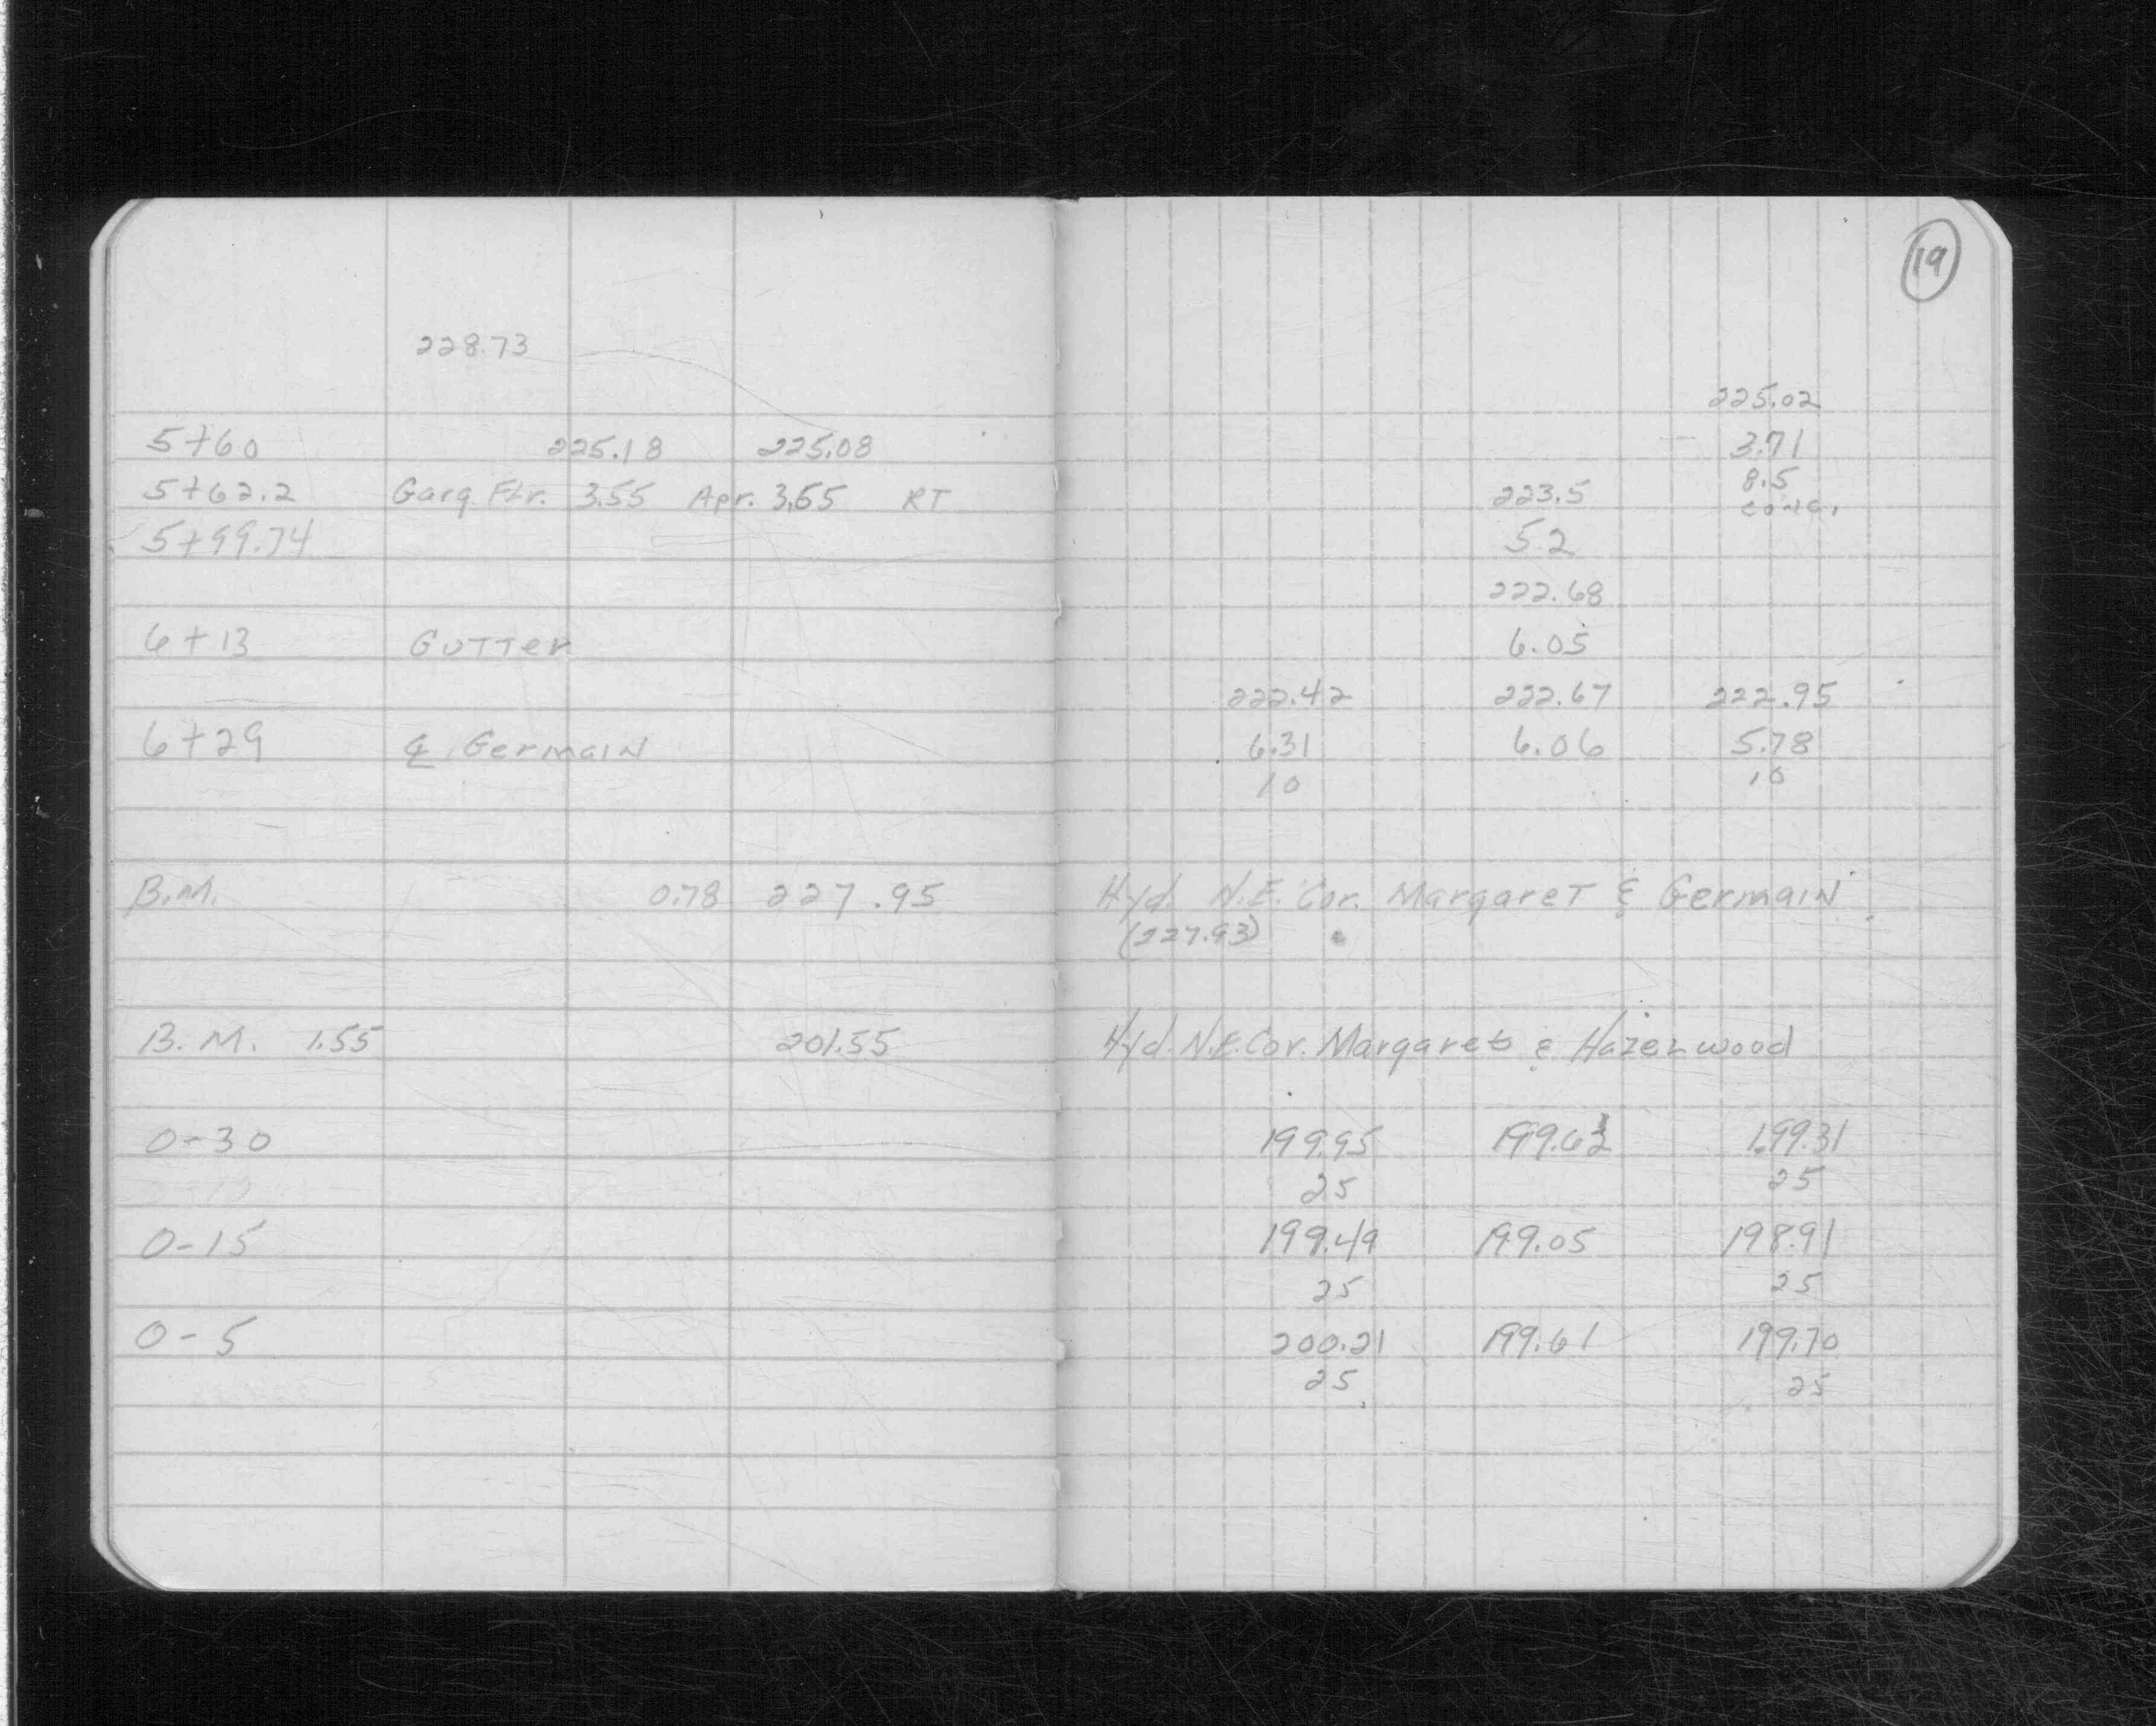 19
228.73
225.02
5+60 225.18 225.08 3.71
5+62.2 Garg. Flr. 3.55 Apr. 3.65 RT 223.5 8.5
conc.
5+99.74 5.2
222.68
6+13 GUTTer 6.05
222.42 222.67 222.95
6+29 ℄ Germain 6.31 6.06 5.78
10 10
B.M. 0.78 227.95 Hyd. N.E. Cor. Margaret & Germain
(227.93)
B.M. 1.55 201.55 Hyd. N.E. Cor. Margaret & Hazelwood
0-30 199.95 199.63 199.31
25 25
0-15 199.49 199.05 198.91
25 25
0-5 200.21 199.61 199.70
25 25